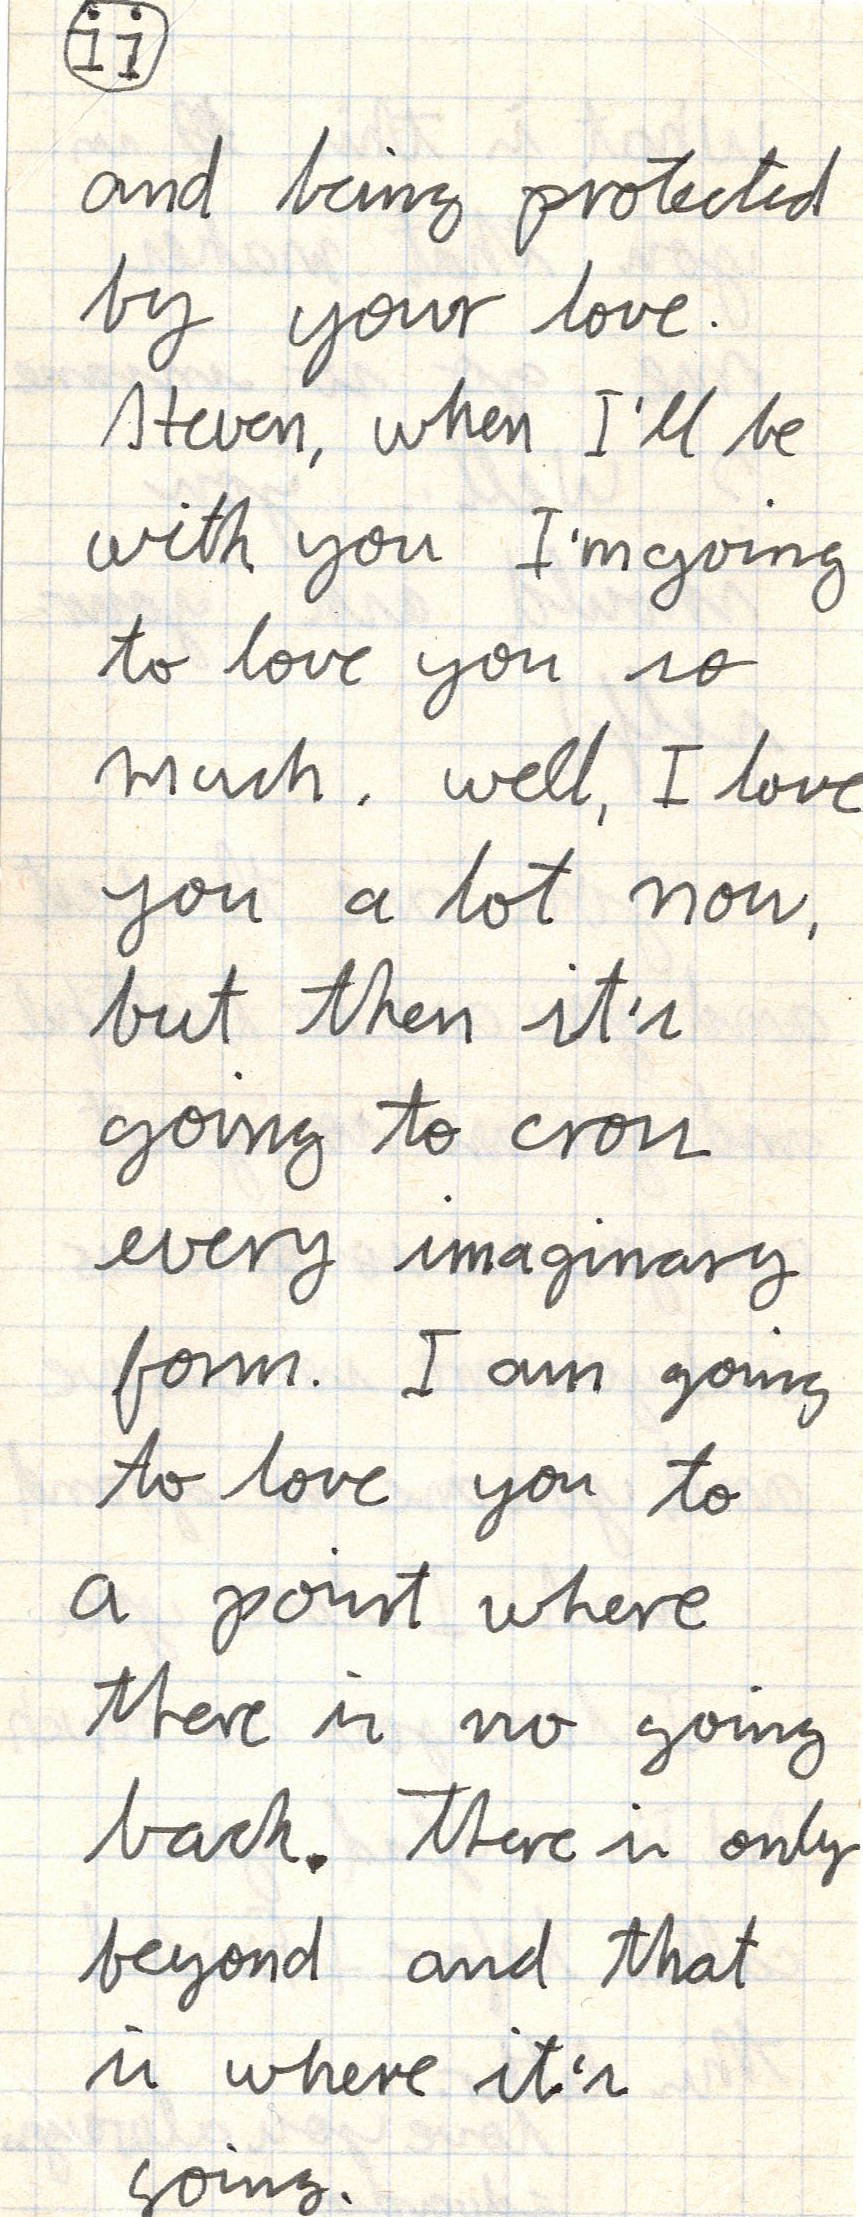 ii
and being protected
by your love.
Steven, when I'll be
with you I'm going
to love you so
much. well, I love
you a lot now,
but then it's
going to cross
every imaginary
form. I am going
to love you to
a point where
there is no going
back. There is only
beyond and that
is where it's
going.